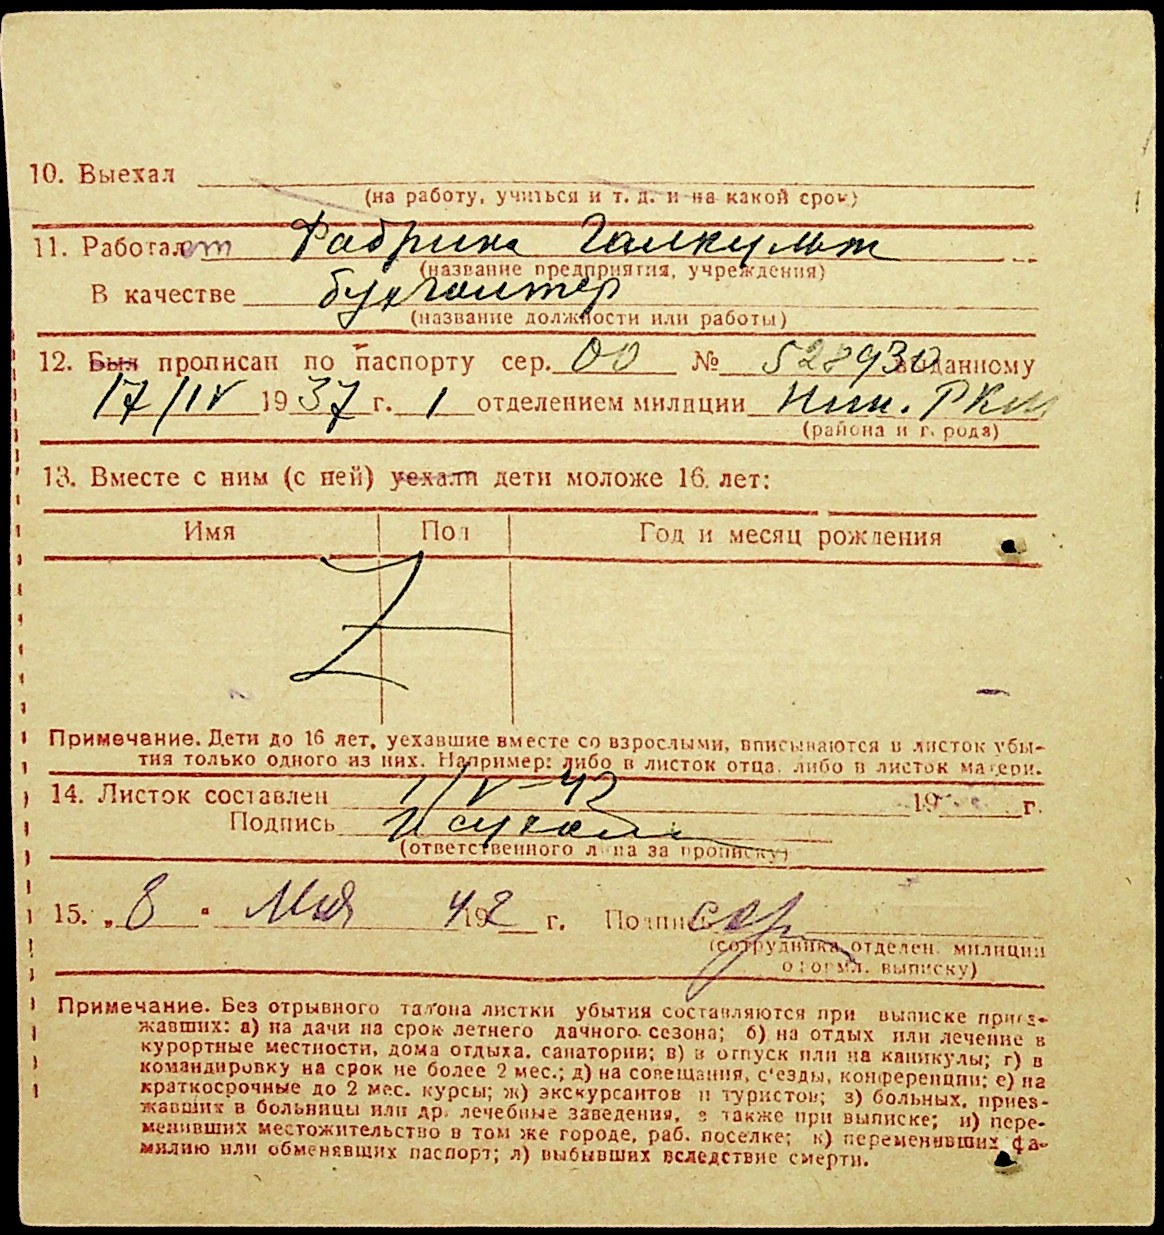 10. Выехал
(на работу, учиться и т. д. и на какой срок)
11. Работает Фабрика Галкульт
(название предприятия, учреждения)
В качестве бухгалтер
(название должности или работы)
12. Был прописан по паспорту сер. 00 № 528930 выданному
17/IV 1937 г. 1 отделением милиции РКМ
(района и города)
13. Вместе с ним (с ней) уехали дети моложе 16 лет:
Имя Пол Год и месяц рождения
Z
Примечание. Дети до 16 лет, уехавшие вместе со взрослыми, вписываются в листок убы-
тия только одного из них. Например: либо в листок отца, либо в листок матери.
14. Листок составлен 1/V-42 19 г.
Подпись
(ответственного лица за прописку)
15. „8" Мая 42 19 г. Подпись
(сотрудника отделен. милиции
оформл. выписку)
Примечание. Без отрывного талона листки убытия составляются при выписке приез-
жавших: а) на дачи на срок летнего дачного сезона; б) на отдых или лечение в
курортные местности, дома отдыха, санатории; в) в отпуск или на каникулы; г) в
командировку на срок не более 2 мес.; д) на совещания, с'езды, конференции; е) на
краткосрочные до 2 мес. курсы; ж) экскурсантов и туристов; з) больных, приез-
жавших в больницы или др. лечебные заведения, а также при выписке; и) пере-
менивших местожительство в том же городе, раб. поселке; к) переменивших фа-
милию или обменявших паспорт; л) выбывших вследствие смерти.